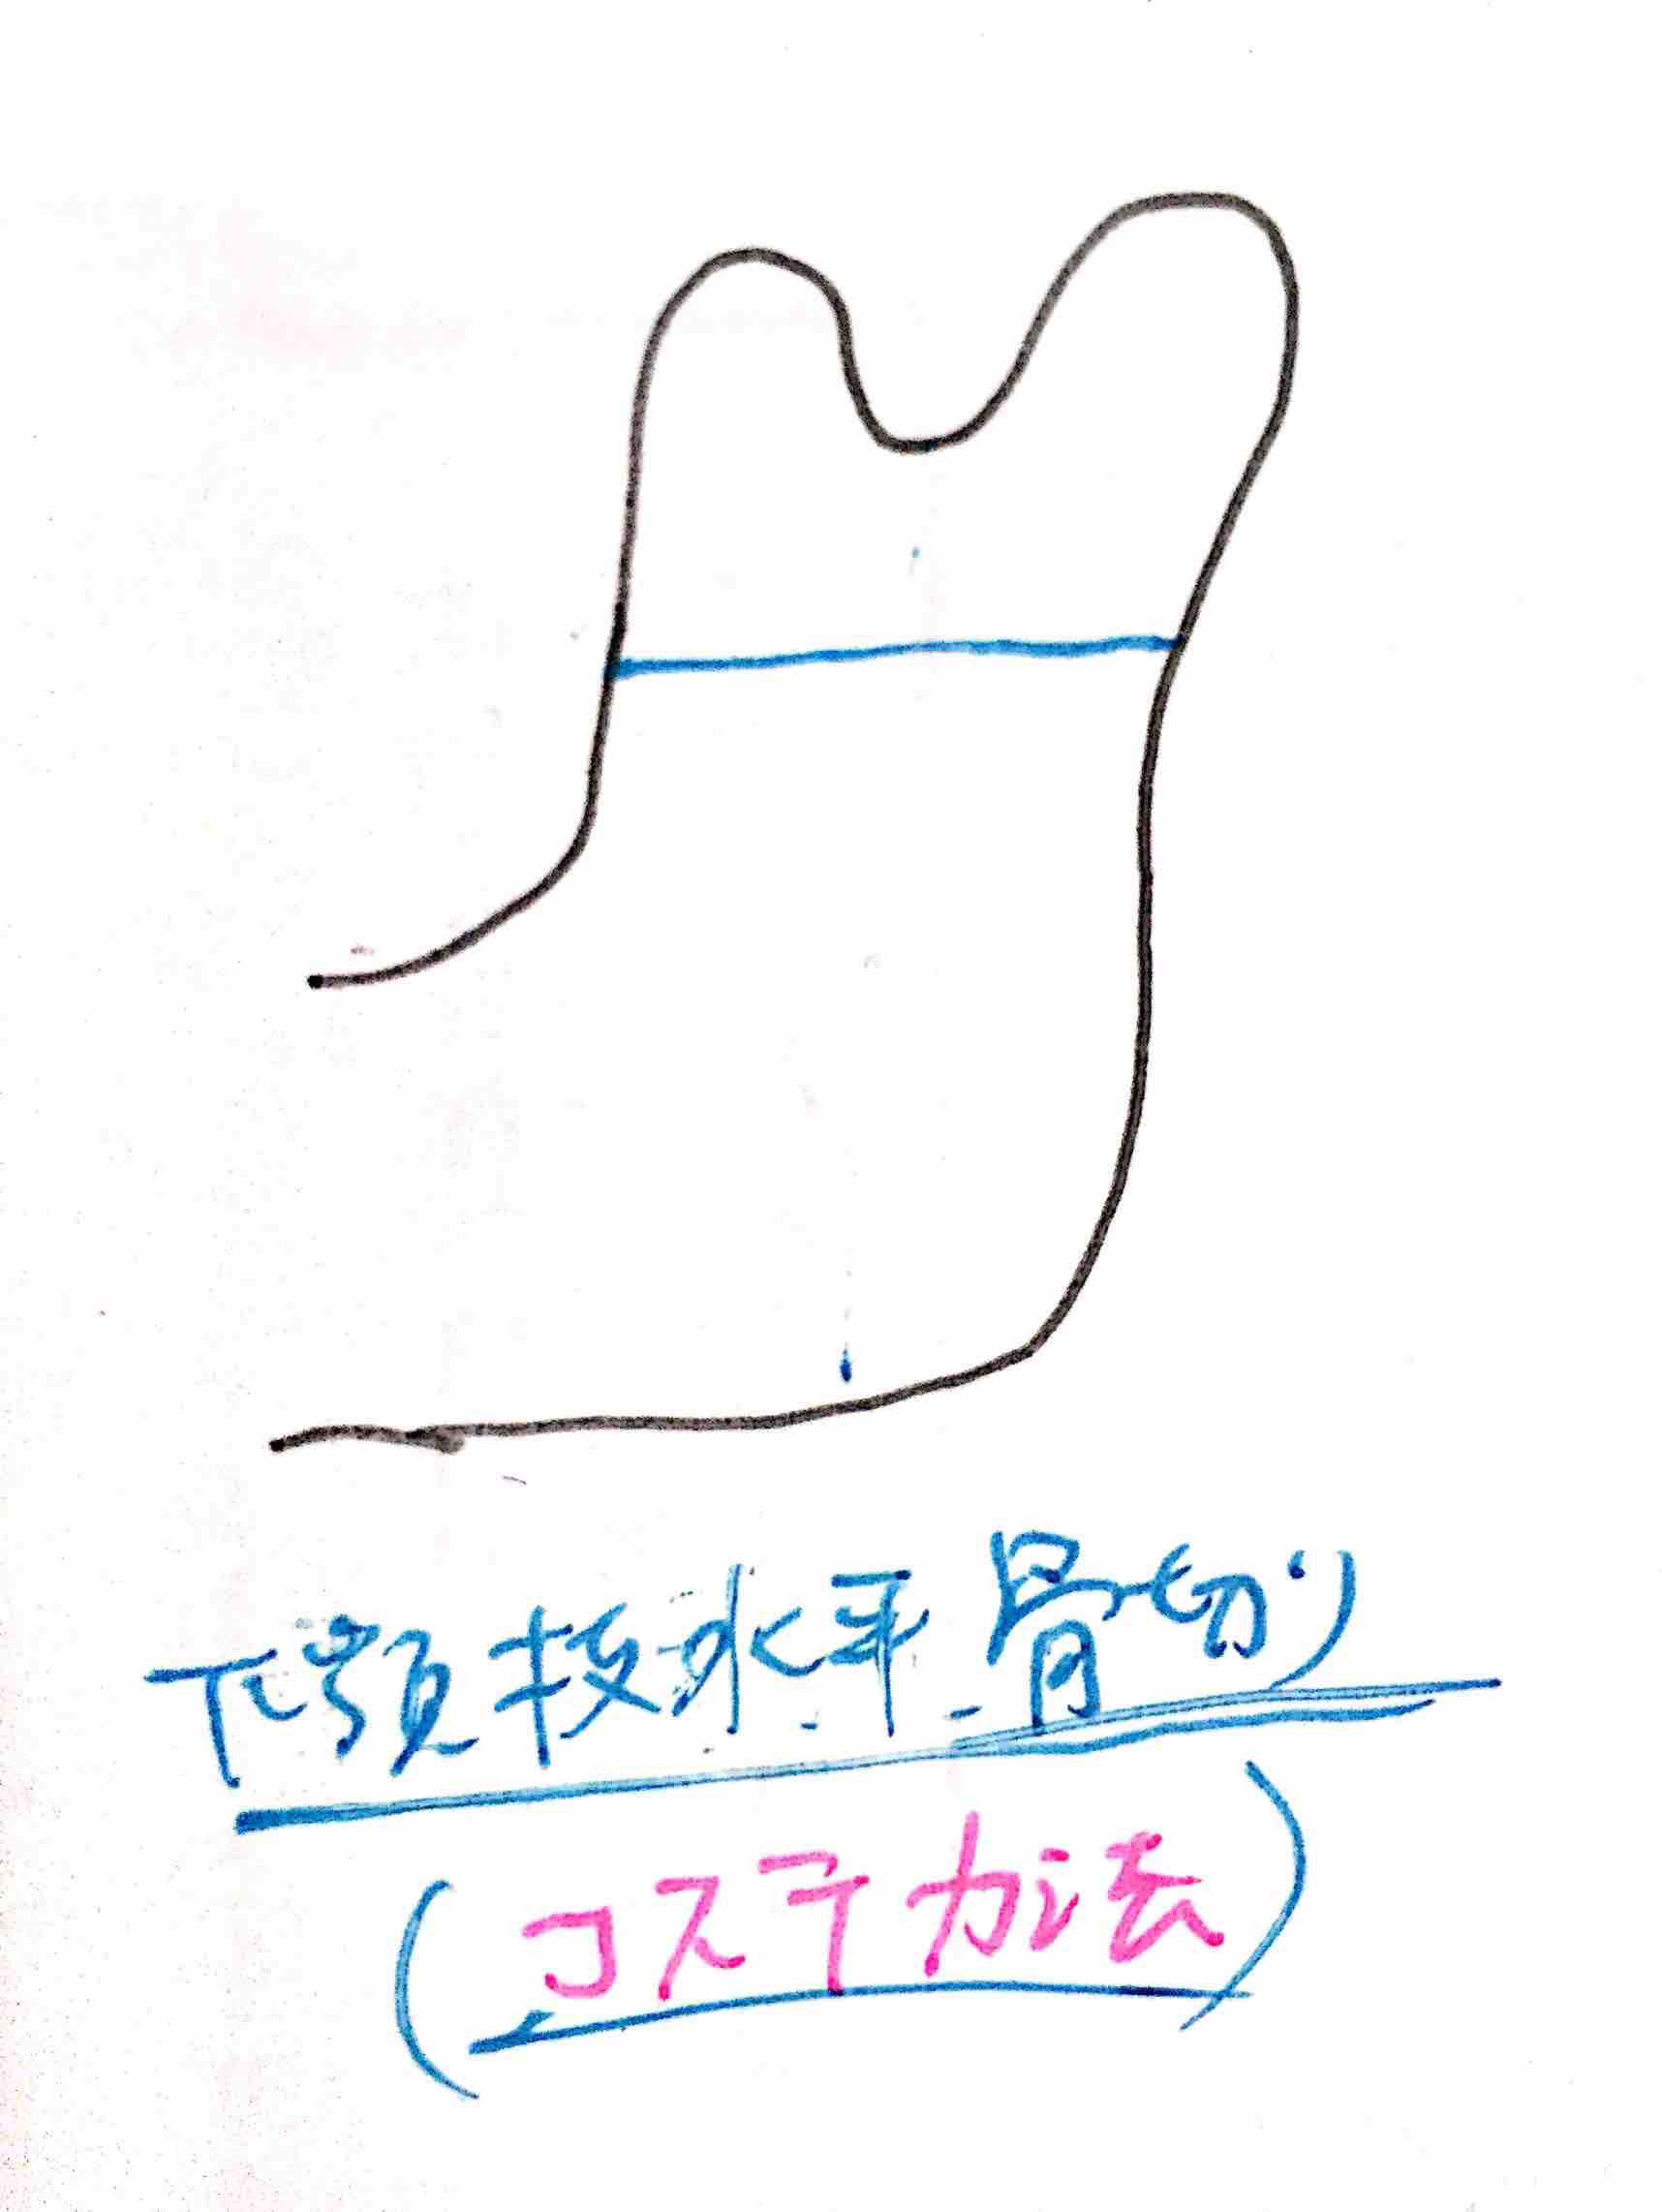 下顎枝水平骨切り
(コステカ法)